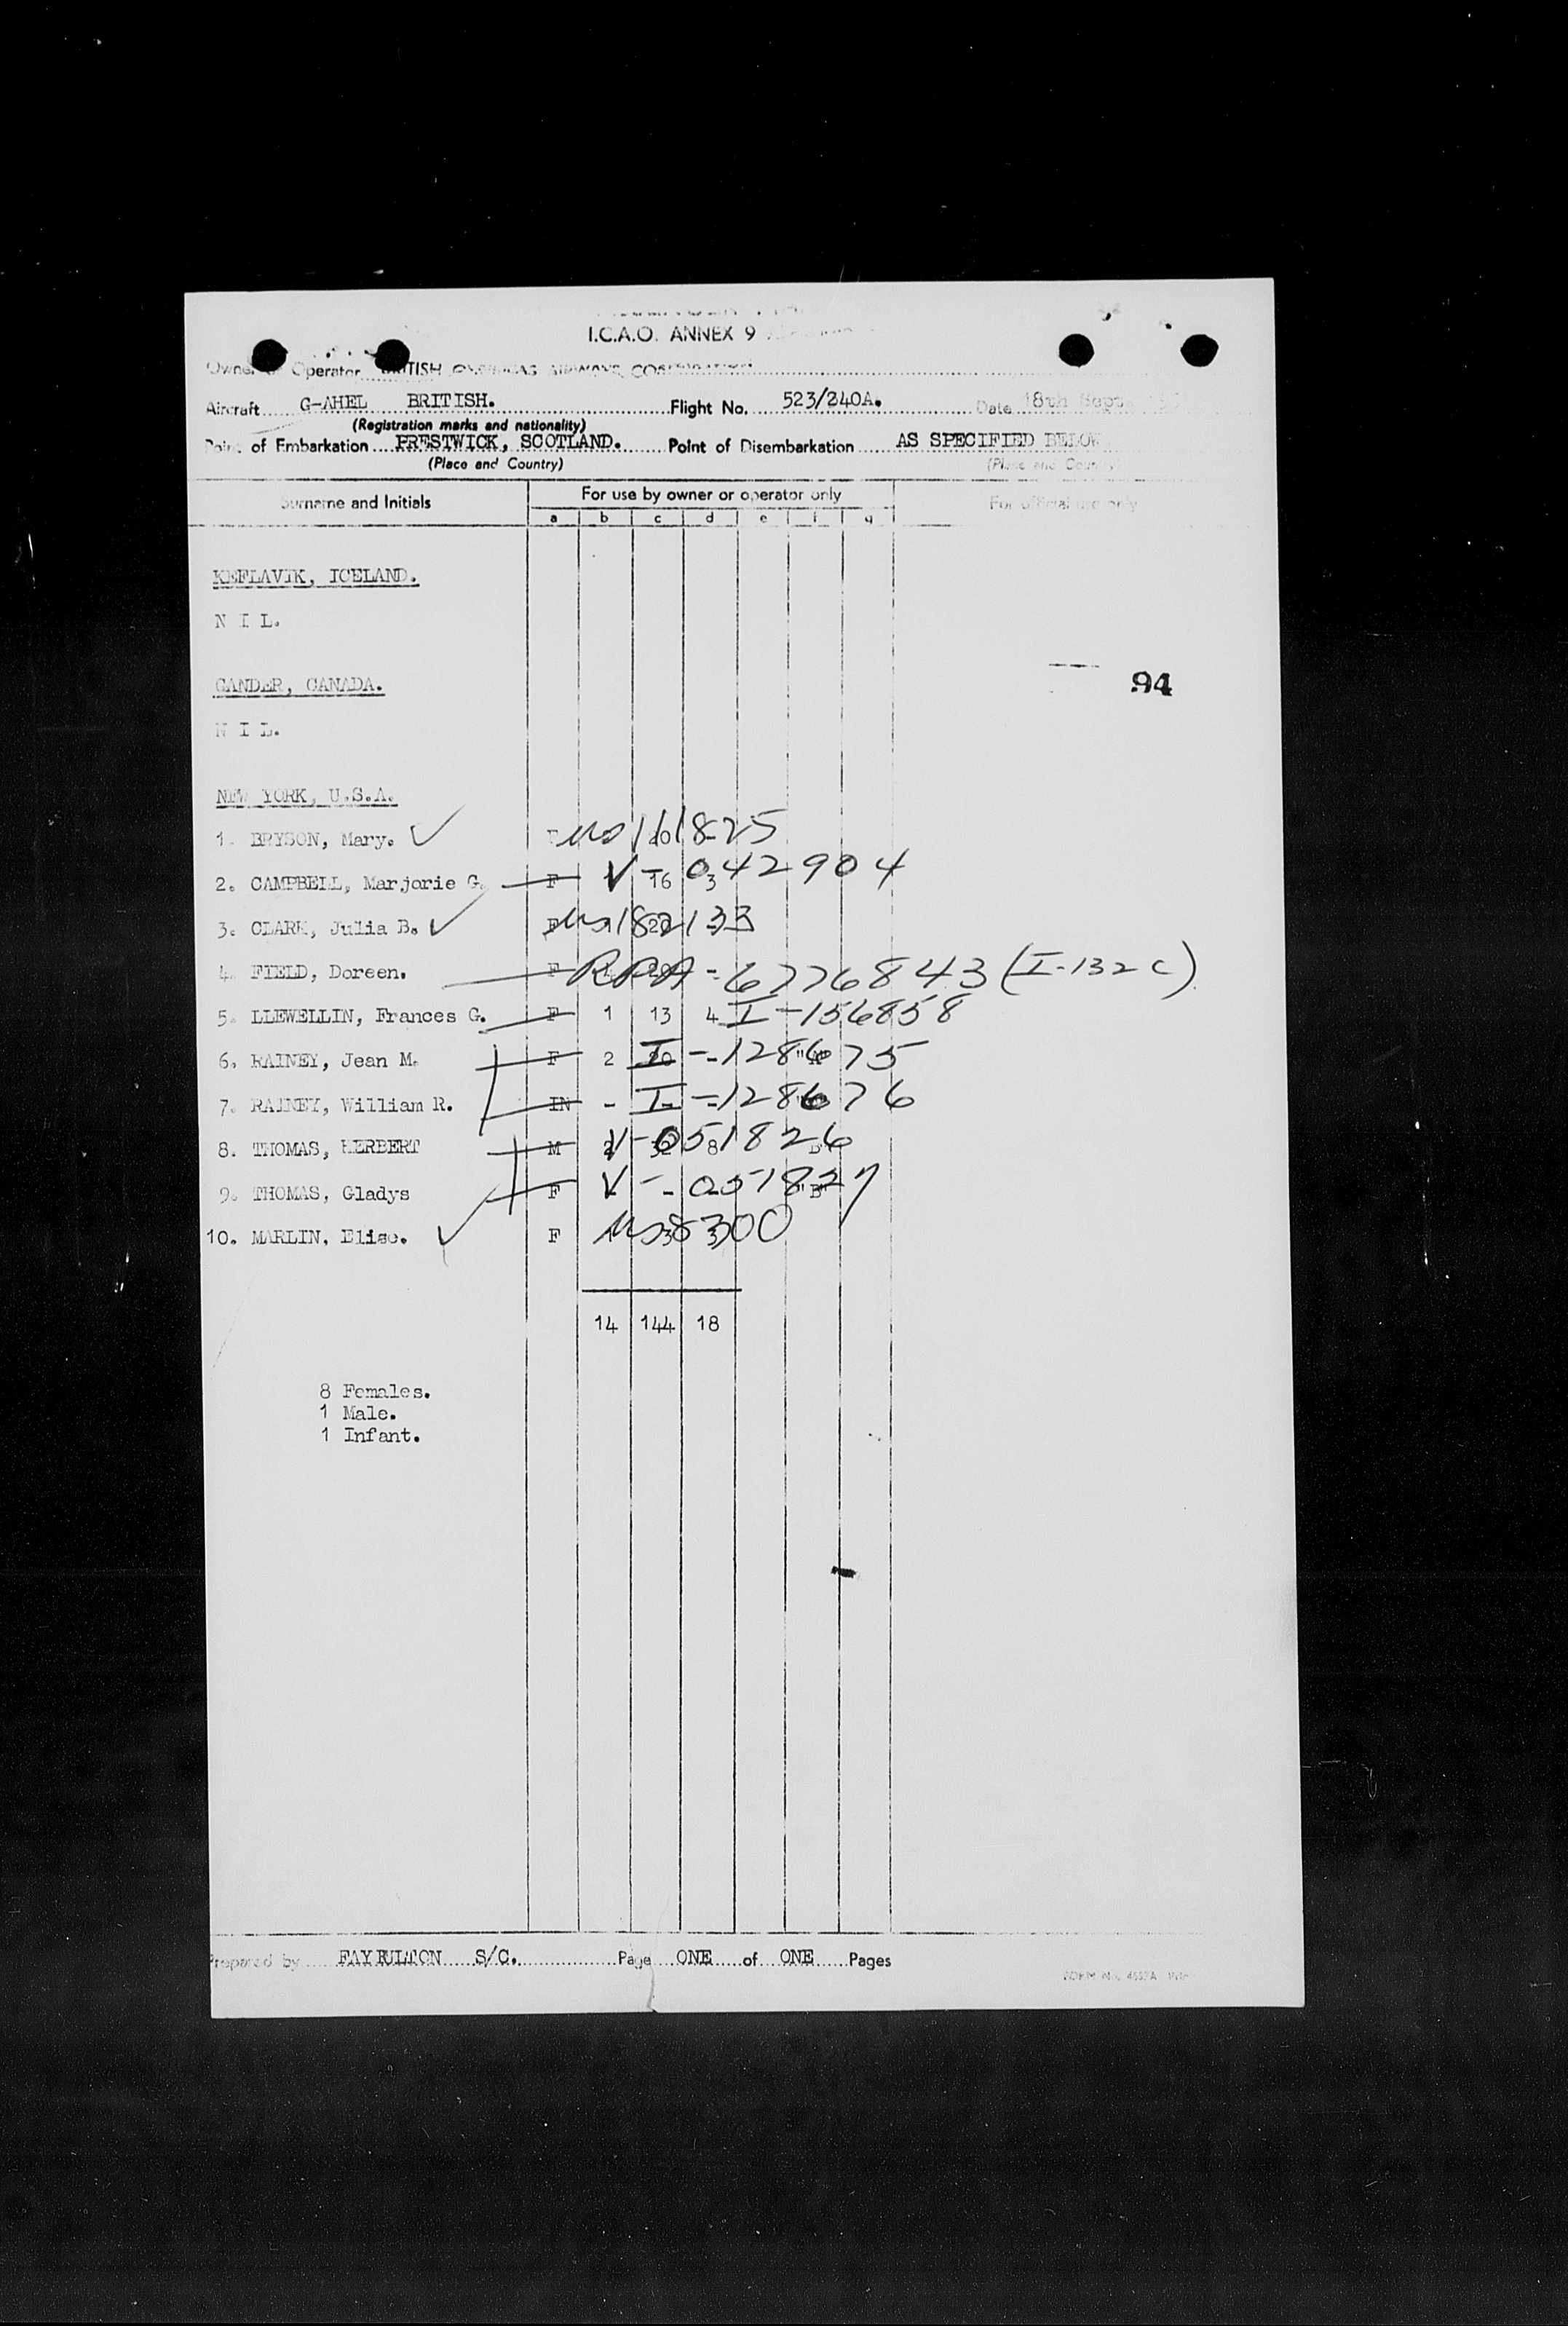 I.C.A.O. ANNEX 9
Owner or Operator BRITISH OVERSEAS AIRWAYS CORPORATION
Aircraft G-AHEL BRITISH. Flight No. 523/240A. Date 18th Sept.
(Registration marks and nationality)
Point of Embarkation PRESTWICK, SCOTLAND. Point of Disembarkation AS SPECIFIED BELOW
(Place and Country) (Place and Country)
Surname and Initials For use by owner or operator only For official use only
a b c d e f g
KEFLAVIK, ICELAND.
N I L.
GANDER, CANADA. 94
N I L.
NEW YORK, U.S.A.
1. BRYSON, Mary. ✓ 111825
2. CAMPBELL, Marjorie G. F 16 3 V-042904
3. CLARK, Julia B. ✓ F 182133
4. FIELD, Doreen. F RPA-6776843 (I-132c)
5. LLEWELLIN, Frances G. F 1 13 4 I-156858
6. RAINEY, Jean M. F 2 20 - I-128675
7. RAINEY, William R. IN - - - I-128676
8. THOMAS, HERBERT M 2 8 V-051826
9. THOMAS, Gladys F - - "B" V-051827
10. MARLIN, Elise. ✓ F 38300
14 144 18
8 Females.
1 Male.
1 Infant.
Prepared by FAY FULTON S/C. Page ONE of ONE Pages
FORM No. 4552A